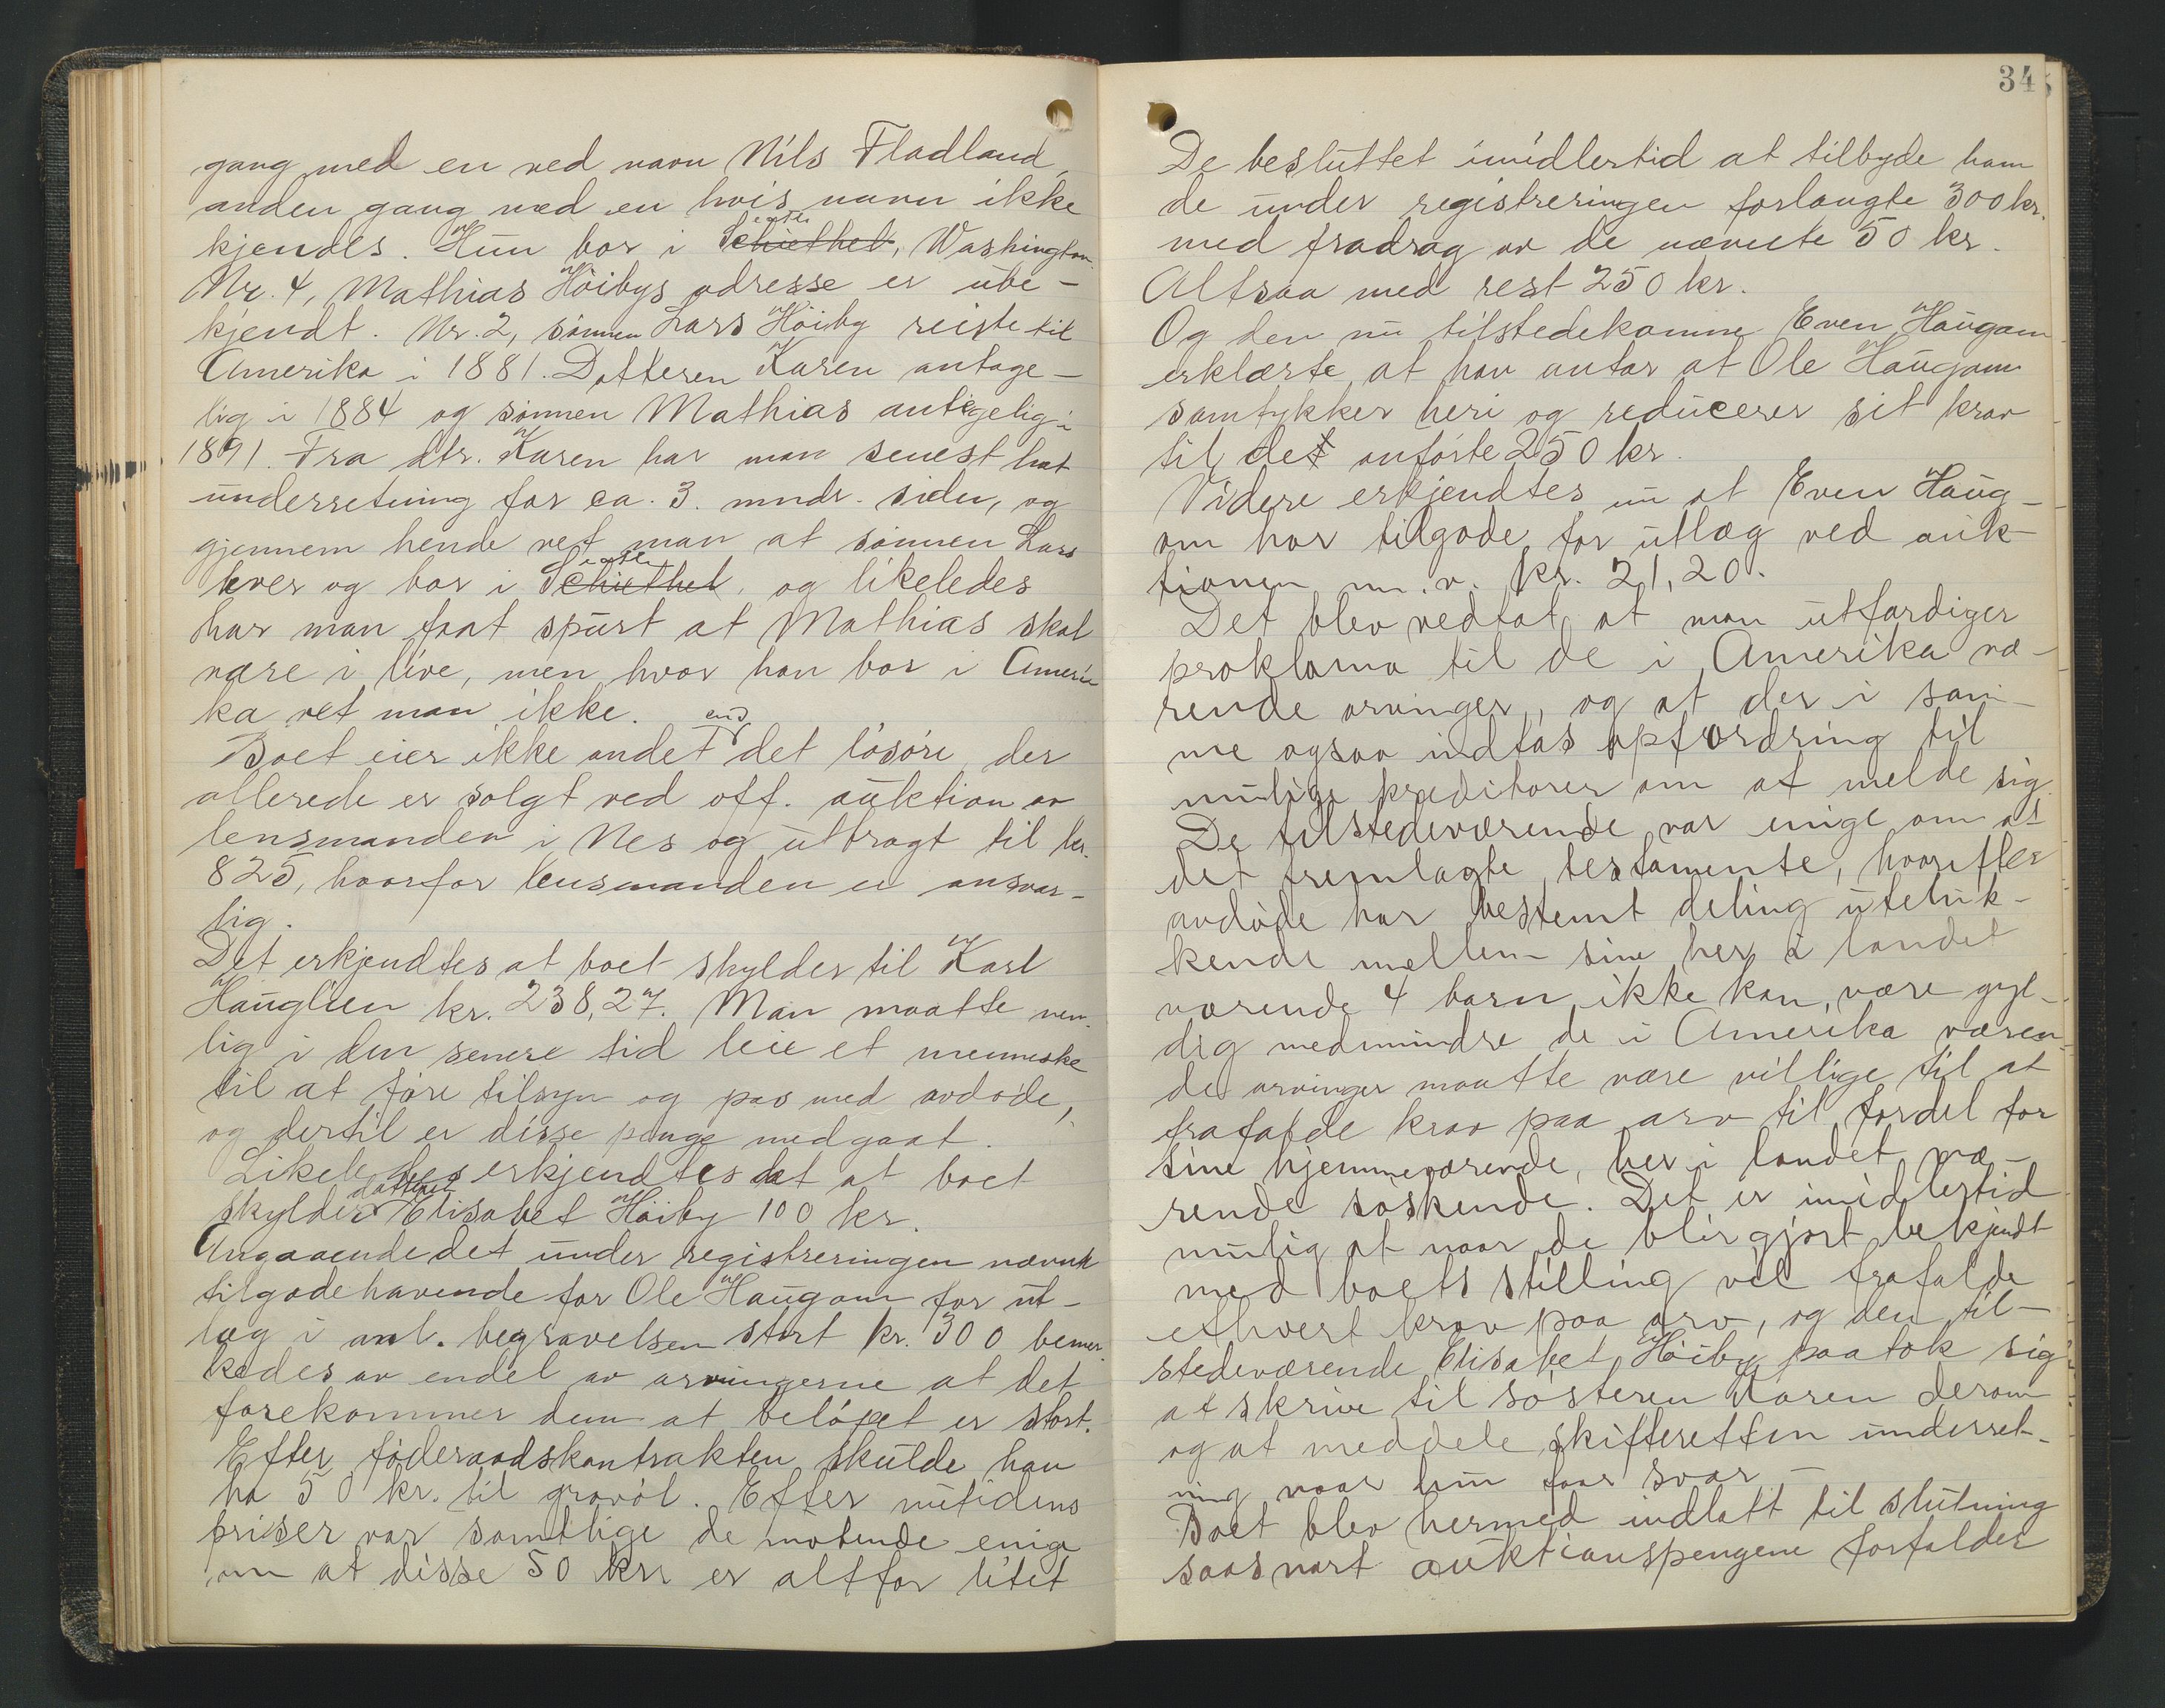 gang med en ved navn Nils Fladland,
anden gang med en hvis navn ikke
eatle
kjendes. Hun bor i Schiethel, Washington.
Nr. 4, Mathias Höibys adresse er ube-
kjendt. Nr. 2, sönnen Lars Höiby reiste til
Amerika i 1881. Datteren Karen antage-
lig i 1884 og sönnen Mathias antagelig i
1891. Fra dtr. Karen har man senest hat
underretning for ca. 3. mndr. siden, og
gjennem hende vet man at sönnen Lars
eatle
lever og bor i Schiethel, og likeledes
har man faat spurt at Mathias skal
være i live, men hvor han bor i Ameri-
ka vet man ikke.
end
Boet eier ikke andet det lösöre der
allerede er solgt ved off. auktion av
lensmanden i Nes og utbragt til kr.
825, hvorfor lensmanden er ansvar-
lig.
Det erkjendtes at boet skylder til Karl
Hauglien kr. 238,27. Man maatte nem-
lig i den senere tid leie et menneske
til at före tilsyn og pas med avdöde,
og dertil er disse penge medgaat.
Likeledes erkjendtes det at boet
datteren
skylder Elisabet Höiby 100 kr.
Angaaende det under registreringen nævnte
tilgodehavende for Ole Haugom for ut-
læg i anl. begravelsen stort kr. 300 bemer-
kedes av endel av arvingerne at det
forekommer dem at belöpet er stort.
Efter föderaadskontrakten skulde han
ha 50 kr. til gravöl. Efter nutidens
priser var samtlige de mötende enige
om at disse 50 kr. er altfor litet
34
De besluttet imidlertid at tilbyde ham
de under registreringen forlangte 300 kr.
med fradrag av de nævnte 50 kr.
Altsaa med rest 250 kr.
Og den nu tilstedekomne Even Haugom
erklærte at han antar at Ole Haugom
samtykker heri og reducerer sit krav
til det anförte 250 kr.
Videre erkjendtes nu at Even Haug-
om har tilgode for utlæg ved auk-
tionen m. v. kr. 21,20.
Det blev vedtat at man utfærdiger
proklama til de i Amerika væ-
rende arvinger, og at der i sam-
me ogsaa indtas opfordring til
mulige kreditorer om at melde sig.
De tilstedeværende var enige om at
det fremlagte testamente, hvorefter
avdöde har bestemt deling uteluk-
kende mellem sine her i landet
værende 4 barn ikke kan være gyl-
dig medmindre de i Amerika væren-
de arvinger maatte være villige til at
frafalde krav paa arv til fordel for
sine hjemmeværende, her i landet væ-
rende söskende. Det er imidlertid
mulig at naar de blir gjort bekjendt
med boets stilling vil frafalde
ethvert krav paa arv, og den til-
stedeværende Elisabet Höiby paatok sig
at skrive til sösteren Karen derom
og at meddele skifteretten underret-
ning naar hun faar svar.
Boet blev hermed indlatt til slutning
saasnart auktionspengene forfalder